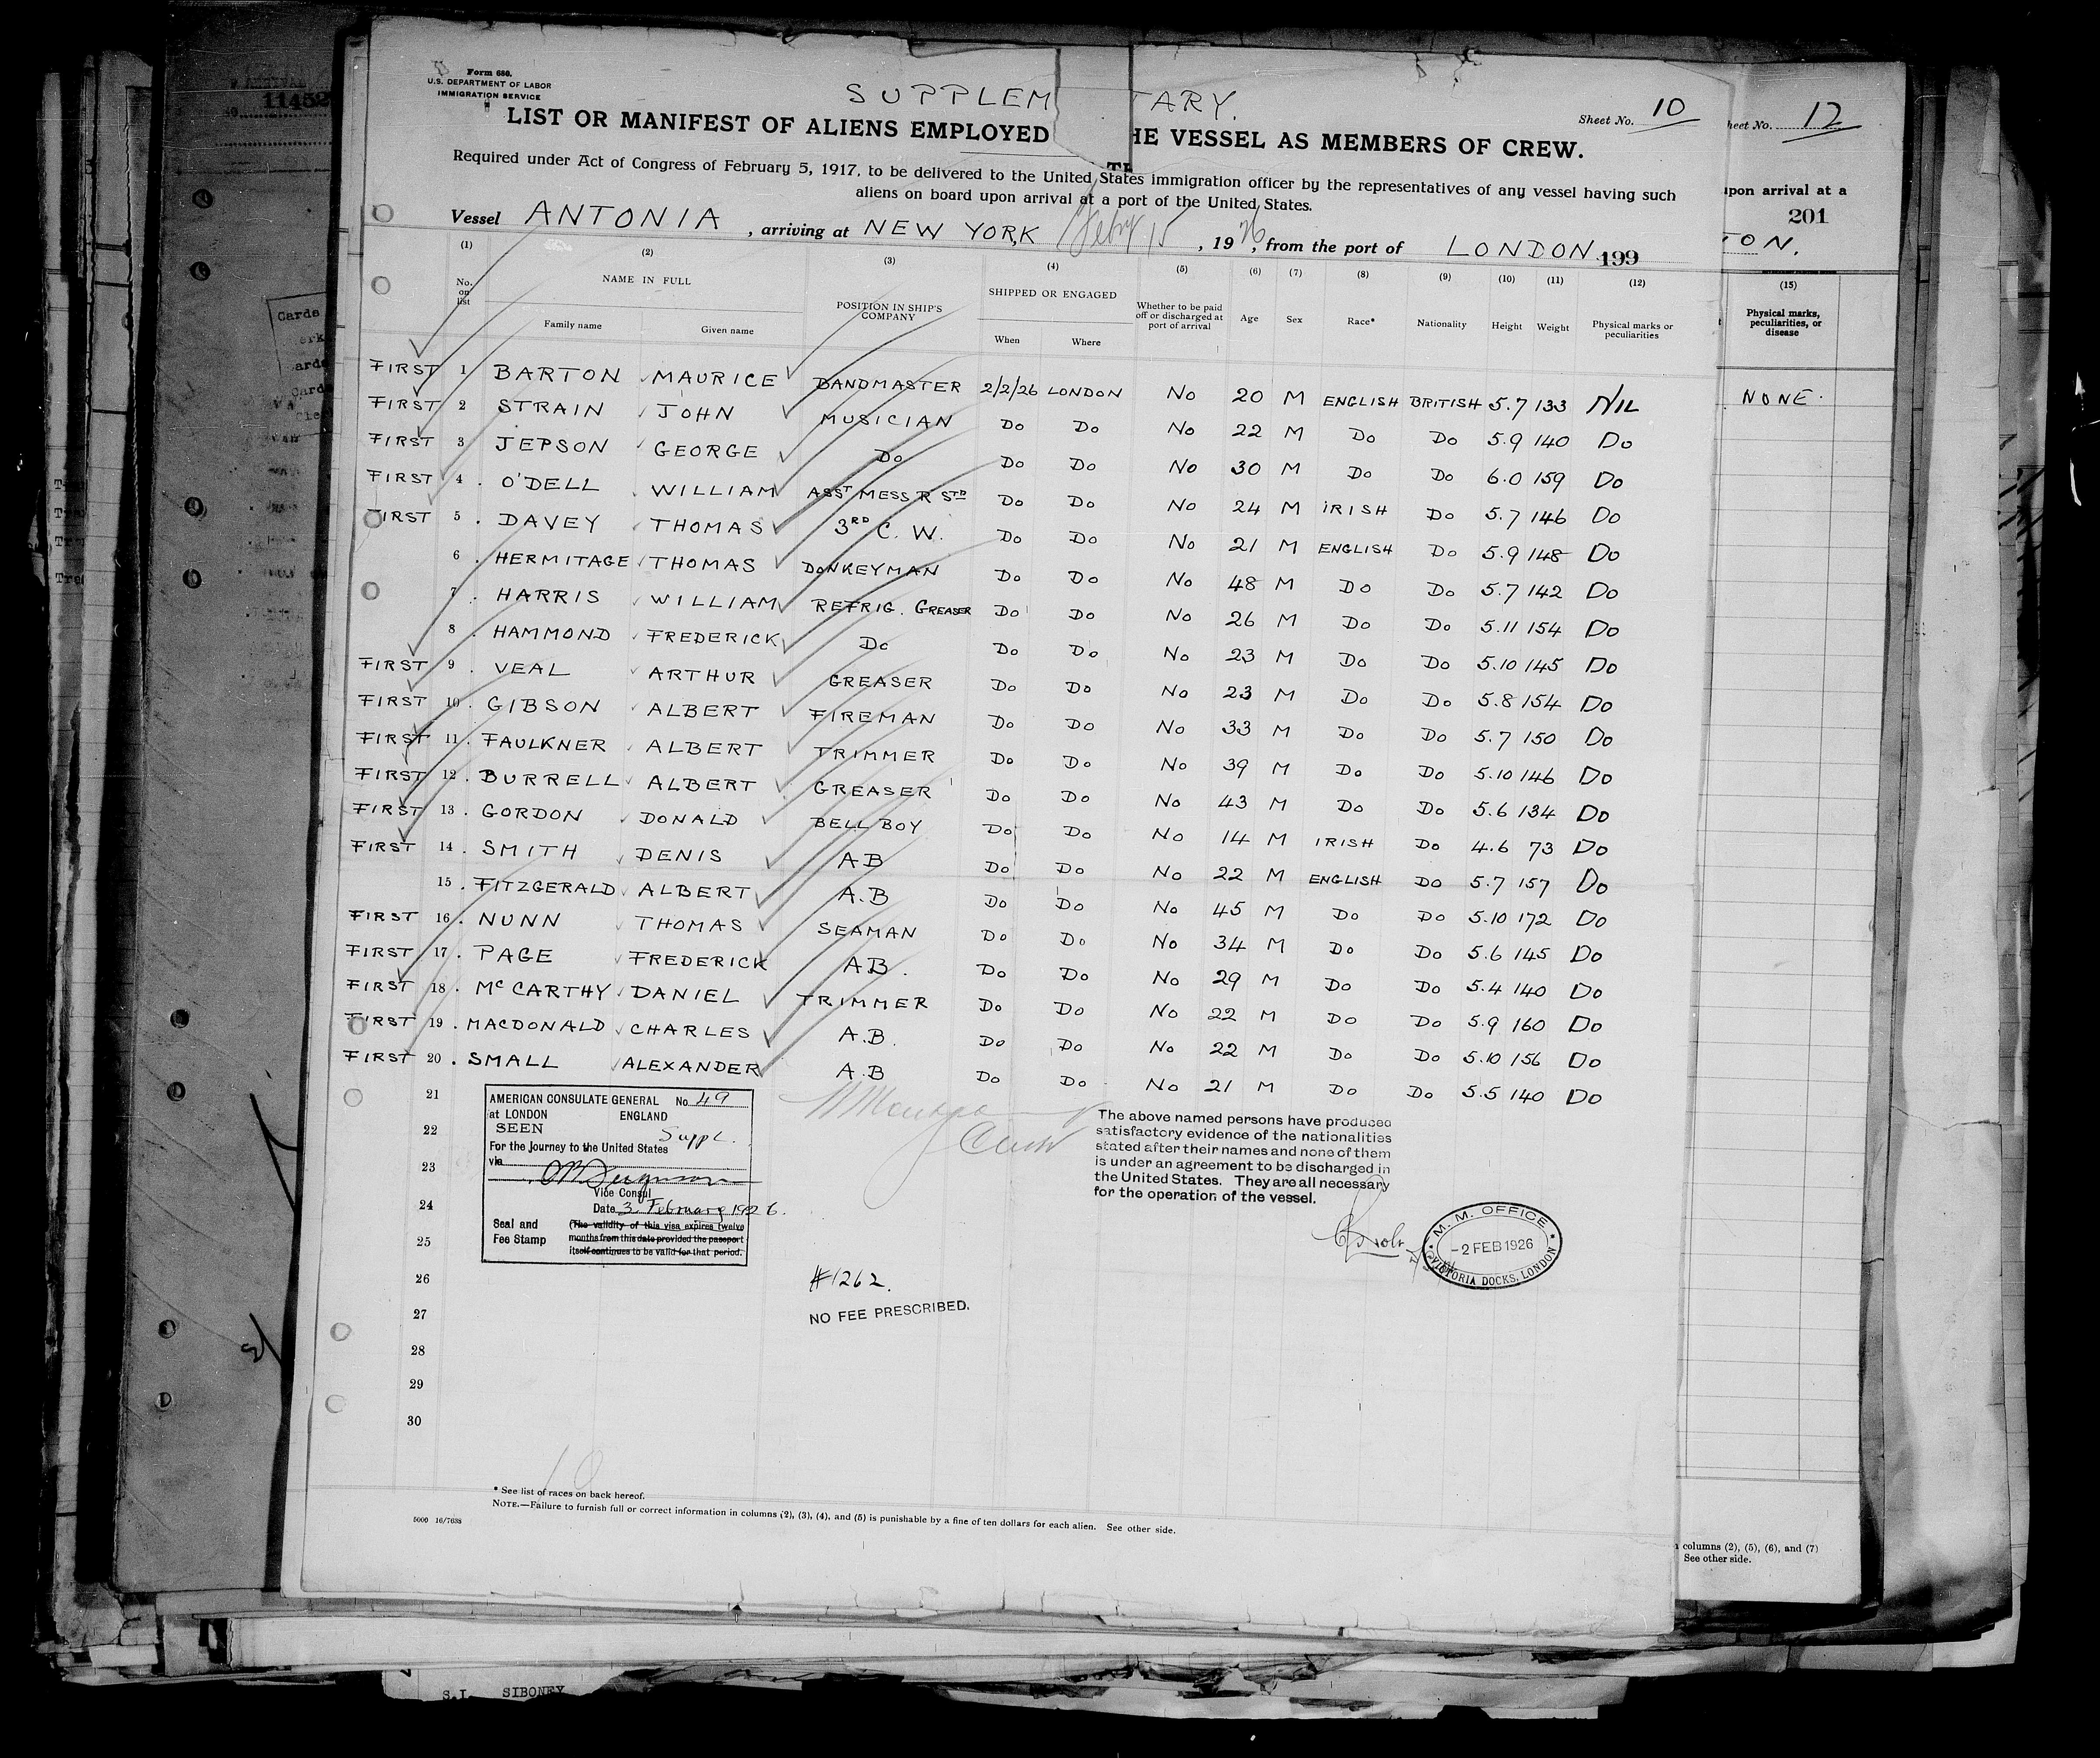 Form 686.
U.S. DEPARTMENT OF LABOR
IMMIGRATION SERVICE
SUPPLEM TARY.
Sheet No. 10
LIST OR MANIFEST OF ALIENS EMPLOYED HE VESSEL AS MEMBERS OF CREW.
Required under Act of Congress of February 5, 1917, to be delivered to the United States immigration officer by the representatives of any vessel having such
aliens on board upon arrival at a port of the United States.
Vessel ANTONIA , arriving at NEW YORK Feby 15 , 1926, from the port of LONDON 199
(1) (2) (3) (4) (5) (6) (7) (8) (9) (10) (11) (12)
No. on list NAME IN FULL Family name Given name POSITION IN SHIP'S COMPANY SHIPPED OR ENGAGED When Where Whether to be paid off or discharged at port of arrival Age Sex Race* Nationality Height Weight Physical marks or peculiarities
FIRST 1 BARTON MAURICE BANDMASTER 2/2/26 LONDON No 20 M ENGLISH BRITISH 5.7 133 NIL
FIRST 2 STRAIN JOHN MUSICIAN Do Do No 22 M Do Do 5.9 140 Do
FIRST 3 JEPSON GEORGE Do Do Do No 30 M Do Do 6.0 159 Do
FIRST 4 . O'DELL WILLIAM ASST MESS R STD Do Do No 24 M IRISH Do 5.7 146 Do
FIRST 5 . DAVEY THOMAS 3RD C. W. Do Do No 21 M ENGLISH Do 5.9 148 Do
6 . HERMITAGE THOMAS DONKEYMAN Do Do No 48 M Do Do 5.7 142 Do
7 . HARRIS WILLIAM REFRIG. GREASER Do Do No 26 M Do Do 5.11 154 Do
8 . HAMMOND FREDERICK Do Do Do No 23 M Do Do 5.10 145 Do
FIRST 9 . VEAL ARTHUR GREASER Do Do No 23 M Do Do 5.8 154 Do
FIRST 10 . GIBSON ALBERT FIREMAN Do Do No 33 M Do Do 5.7 150 Do
FIRST 11 . FAULKNER ALBERT TRIMMER Do Do No 39 M Do Do 5.10 146 Do
FIRST 12 . BURRELL ALBERT GREASER Do Do No 43 M Do Do 5.6 134 Do
FIRST 13 . GORDON DONALD BELL BOY Do Do No 14 M IRISH Do 4.6 73 Do
FIRST 14 . SMITH DENIS AB Do Do No 22 M ENGLISH Do 5.7 157 Do
15 . FITZGERALD ALBERT A.B Do Do No 45 M Do Do 5.10 172 Do
FIRST 16 . NUNN THOMAS SEAMAN Do Do No 34 M Do Do 5.6 145 Do
FIRST 17 . PAGE FREDERICK A.B. Do Do No 29 M Do Do 5.4 140 Do
FIRST 18 . McCARTHY DANIEL TRIMMER Do Do No 22 M Do Do 5.9 160 Do
FIRST 19 . MACDONALD CHARLES A.B. Do Do No 22 M Do Do 5.10 156 Do
FIRST 20 . SMALL ALEXANDER A.B Do Do No 21 M Do Do 5.5 140 Do
21
22
23
24
25
26
27
28
29
30
AMERICAN CONSULATE GENERAL No. 49
at LONDON ENGLAND
SEEN Suppl.
For the Journey to the United States
via
Vice Consul
Date 3 February 1926.
Seal and Fee Stamp
(The validity of this visa expires twelve
months from this date provided the passport
itself continues to be valid for that period.
The above named persons have produced
satisfactory evidence of the nationalities
stated after their names and none of them
is under an agreement to be discharged in
the United States. They are all necessary
for the operation of the vessel.
M. M. OFFICE
-2 FEB 1926
VICTORIA DOCKS, LONDON
#1262.
NO FEE PRESCRIBED.
10
* See list of races on back hereof.
NOTE.—Failure to furnish full or correct information in columns (2), (3), (4), and (5) is punishable by a fine of ten dollars for each alien. See other side.
5000 16/7638
heet No. 12
upon arrival at a
201
ON.
(15)
Physical marks, peculiarities, or disease
NONE.
columns (2), (5), (6), and (7)
See other side.
11452
Cards
S.I. SIBONEY